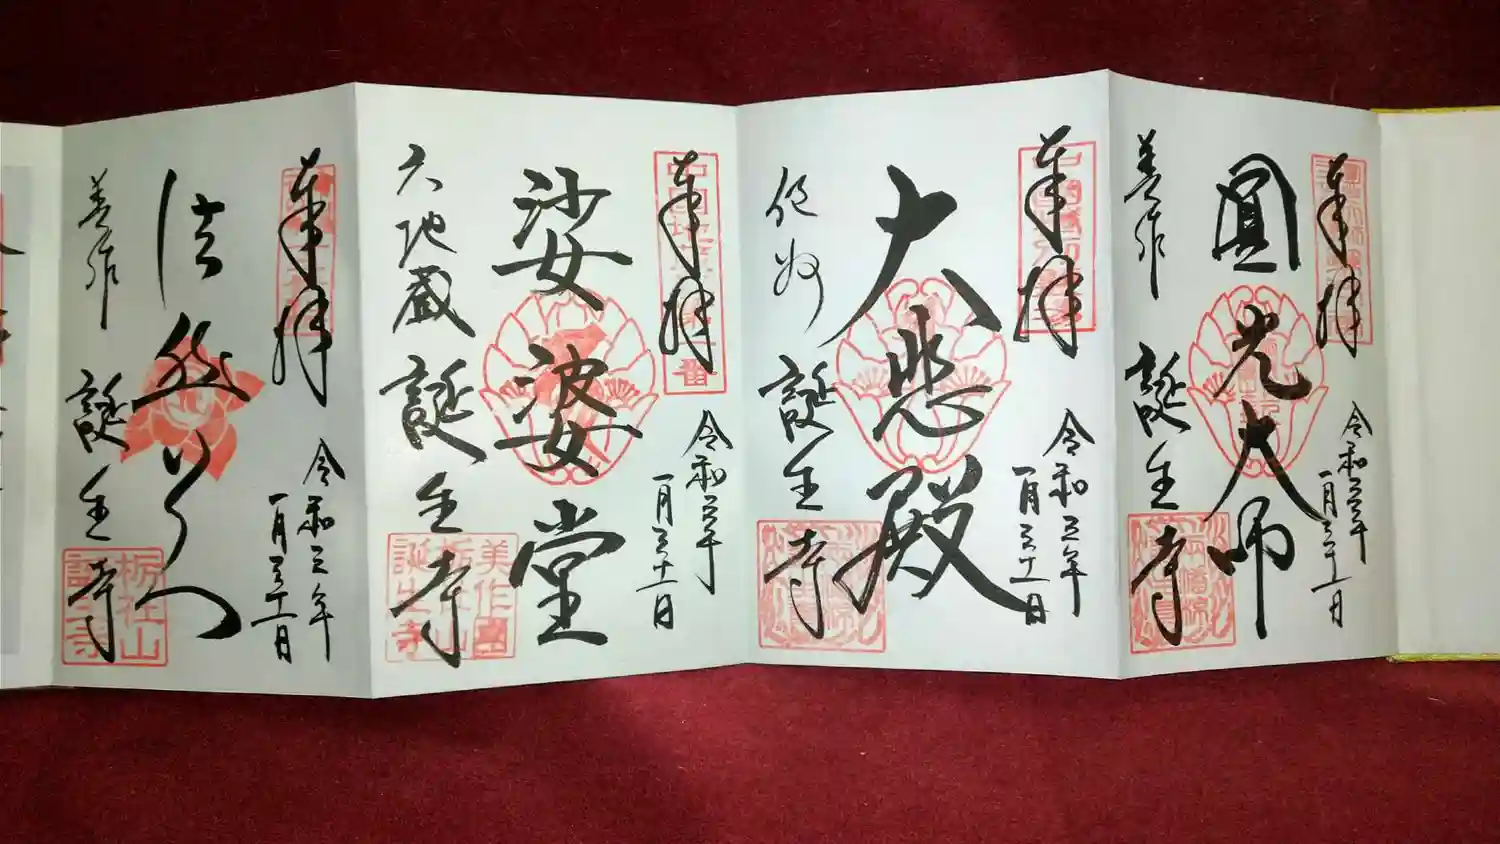 奉拝
令和三年
一月三十一日
圓光大師
美作
誕生寺
奉拝
令和三年
一月三十一日
大悲殿
作州
誕生寺
奉拝
令和三年
一月三十一日
娑婆堂
六地蔵
誕生寺
美作國
栃社山
誕生寺
奉拝
令和三年
一月三十一日
法然上人
美作
誕生寺
栃社山
誕生寺